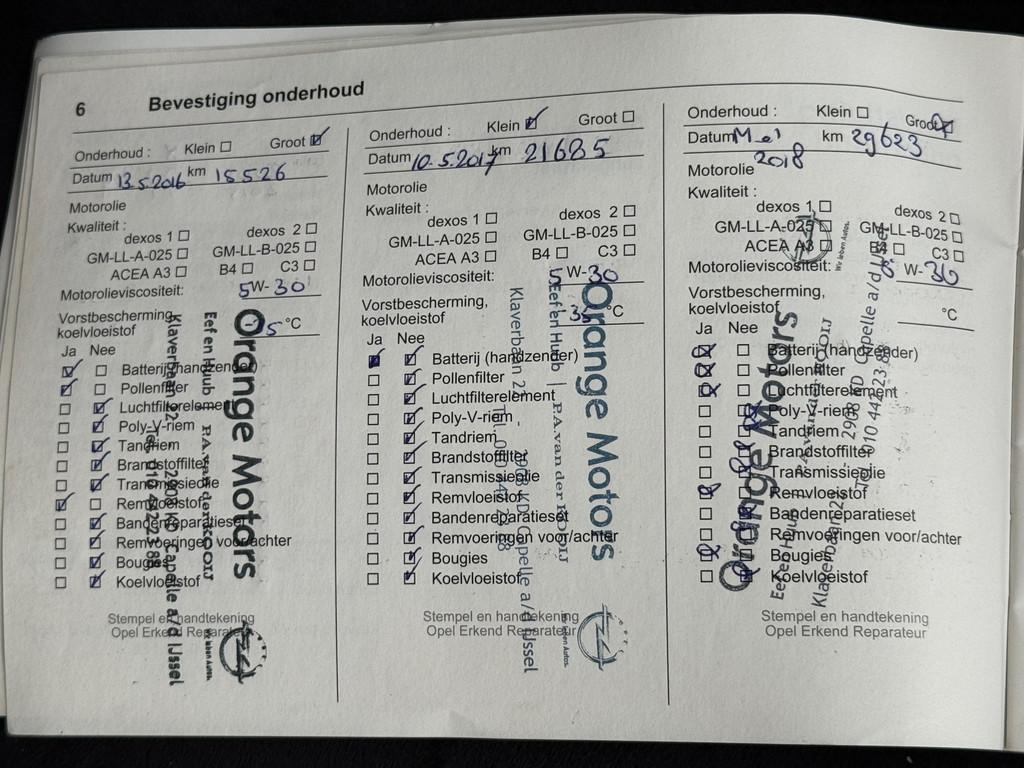 6
Bevestiging onderhoud
Onderhoud : Klein ☐ Groot ☑
Datum 13.5.2016 km 15526
Motorolie
Kwaliteit :
dexos 1 ☐ dexos 2 ☐
GM-LL-A-025 ☐ GM-LL-B-025 ☐
ACEA A3 ☐ B4 ☐ C3 ☐
Motorolieviscositeit: 5W-30
Vorstbescherming,
koelvloeistof °C
Ja Nee
☑ ☐ Batterij (handzender)
☑ ☐ Pollenfilter
☐ ☑ Luchtfilterelement
☐ ☑ Poly-V-riem
☐ ☑ Tandriem
☐ ☑ Brandstoffilter
☐ ☑ Transmissieolie
☑ ☐ Remvloeistof
☐ ☑ Bandenreparatieset
☐ ☑ Remvoeringen voor/achter
☐ ☑ Bougies
☐ ☑ Koelvloeistof
Stempel en handtekening
Opel Erkend Reparateur
Orange Motors
Eef en Huub P.A. van der KOOIJ
Klaverbaan
2908 KD Capelle a/d IJssel
Wir leben Autos.
Onderhoud : Klein ☑ Groot ☐
Datum 10.5.2017 km 21685
Motorolie
Kwaliteit :
dexos 1 ☐ dexos 2 ☐
GM-LL-A-025 ☐ GM-LL-B-025 ☐
ACEA A3 ☐ B4 ☐ C3 ☐
Motorolieviscositeit: 5W-30
Vorstbescherming,
koelvloeistof -35 °C
Ja Nee
☑ Batterij (handzender)
☐ ☑ Pollenfilter
☐ ☑ Luchtfilterelement
☐ ☑ Poly-V-riem
☐ ☑ Tandriem
☐ ☑ Brandstoffilter
☐ ☑ Transmissieolie
☐ ☑ Remvloeistof
☐ ☑ Bandenreparatieset
☐ ☑ Remvoeringen voor/achter
☐ ☑ Bougies
☐ ☑ Koelvloeistof
Stempel en handtekening
Opel Erkend Reparateur
Orange Motors
Eef en Huub | P.A. van der KOOIJ
Klaverbaan
2908 KD Capelle a/d IJssel
Wir leben Autos.
Onderhoud : Klein ☐ Groot ☒
Datum Mei 2018 km 29623
Motorolie
Kwaliteit :
dexos 1 ☐ dexos 2 ☐
GM-LL-A-025 ☐ GM-LL-B-025 ☐
ACEA A3 ☐ B4 ☐ C3 ☐
Motorolieviscositeit: W-30
Vorstbescherming,
koelvloeistof °C
Ja Nee
☒ ☐ Batterij (handzender)
☒ ☐ Pollenfilter
☒ ☐ Luchtfilterelement
☐ Poly-V-riem
☐ Tandriem
☐ Brandstoffilter
☐ Transmissieolie
☒ Remvloeistof
☐ Bandenreparatieset
☐ Remvoeringen voor/achter
☒ Bougies
☐ Koelvloeistof
Stempel en handtekening
Opel Erkend Reparateur
Orange Motors
Eef en Huub
Klaverbaan
Capelle a/d IJssel
Wir leben Autos.